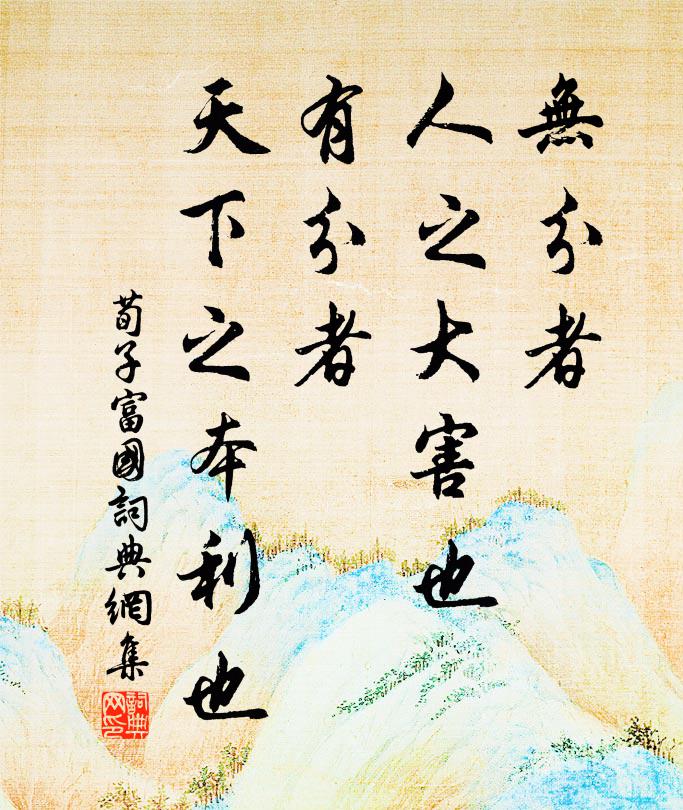 無分者
人之大害也
有分者
天下之本利也
荀子富國詞典網集
詞典網印